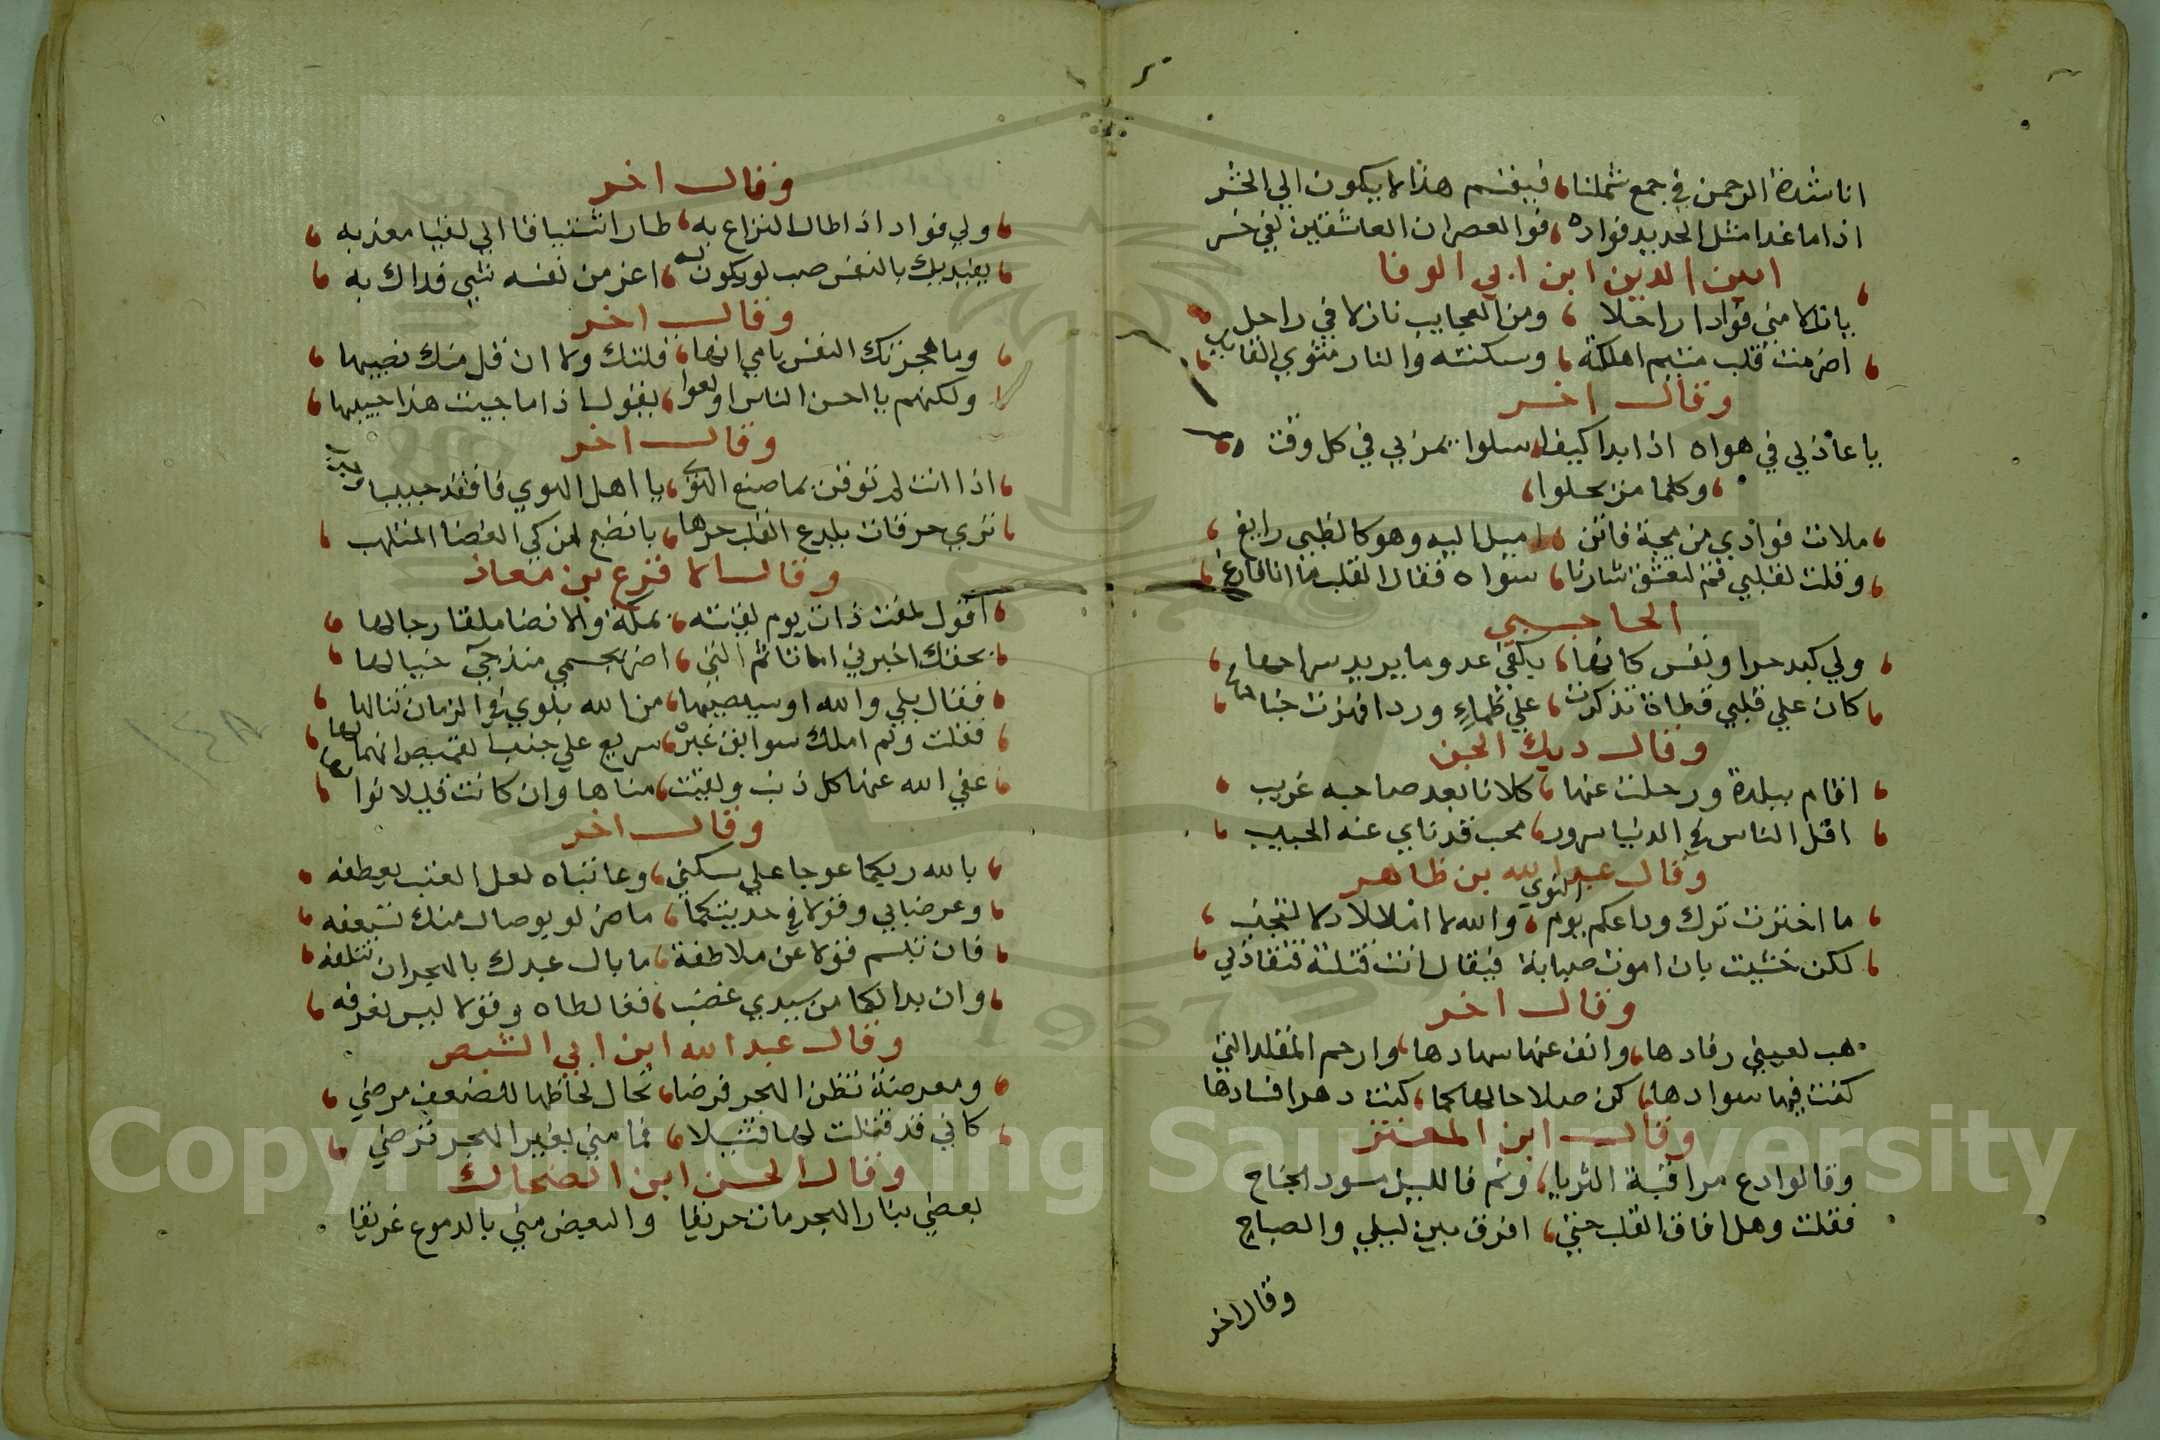 اناشدة الرحمن في جمع شملنا، فيقسم هذا لا يكون الي الحشر
اذا ما غدا مثل الحديد فواده، فوالعصر ان العاشقين لفي خسر
امين الدين ابن ابي الوفا
يا نازلا مني فؤادا راحلا، ومن العجايب نازلا في راحل
اضرمت قلب متيم اهلكته، وسكنته والنار مثوي القاتل
وقال اخر
يا عاذلي في هواه اذا بدا كيف اسلوا يمر بي في كل وقت
وكلما مر يحلوا،
ملات فوادي من محبة فاتن، اميل اليه وهو كالظبي رايغ
وقلت لقلبي قم لتعشق شادنا، سواه فقال القلب ما انا فارغ
الحاجبي
ولي كبد حرا ونفس كانها، بكفي عدو ما يريد سراحها
كان علي قلبي قطاة تذكرت، علي ظماء وردا فهزت جناحها
وقال ديك الجن
اقام ببلدة ورحلت عنها، كلانا بعد صاحبه غريب
اقل الناس في الدنيا سرور، محب قد ناي عنه الحبيب
وقال عبد الله بن طاهر
ما اخترت ترك وداعكم يوم النوي، والله لا مللا ولا لتجنب
لكن خشيت بان اموت صبابة، فيقال انت قتلته فتقاد لي
وقال اخر
هب لعيني رقادها، وانف عنها سهادها، وارحم المقلة التي
كنت فيها سوادها، كن صلاحا لها كما، كنت دهرا فسادها
وقال ابن المعتز
وقالوا دع مراقبة الثريا، ونم فالليل مسود الجناح
فقلت وهل افاق القلب حتي، افرق بين ليلي والصباح
وقال اخر
وقال اخر
ولي فواد اذا طال النزاع به، طار اشتياقا الي لقيا معذبه
يفديك بالنفس صب لو يكون له، اعز من نفسه شي فداك به
وقال اخر
وما هجرتك النفس يا مي انها، قلتك ولا ان قل منك نصيبها
ولكنهم يا احسن الناس اولعوا، بقول اذا ما جيت هذا حبيبها
وقال اخر
اذا انت لم توقن بما صنع الهوي، يا اهل الهوي فافقد حبيبا
تري حرقات يلدع القلب حرها، بانضج من كي الغضا المتلهب
وقال الاقرع بن معاذ
اقول لمفت ذات يوم لقيته، بمكة والانضا ملقا رحالها
بحقك اخبرني اما تاثم التي، اضر بجسمي منذ حين خيالها
فقال بلي والله او سيصيبها، من الله بلوي في الزمان تنالها
فقلت ولم املك سوابق عبرة، سريع علي جنب القميص انهمالها
عفي الله عنها كل ذنب ولقيت، مناها وان كانت قليلا نوالها
وقال اخر
بالله ربكما عوجا علي سكني، وعاتباه لعل العتب يعطفه
وعرضا بي وقولا في حديثكما، ما ضر لو بوصال منك تسعفه
فان تبسم قولا عن ملاطفة، ما بال عبدك بالهجران تتلفه
وان بدا لكما من سيدي غضب، فغالطاه وقولا ليس نعرفه
وقال عبد الله ابن ابي الشيص
ومعرضة تظن الهجر فرضا، تخال لحاظها للضعف مرضي
كاني قد قتلت لها قتيلا، فما مني بغير الهجر ترضي
وقال الحسن ابن الضحاك
بعضي بنار الهجر مات حريقا والبعض مني بالدموع غريقا
Copyright © King Saud University
1957